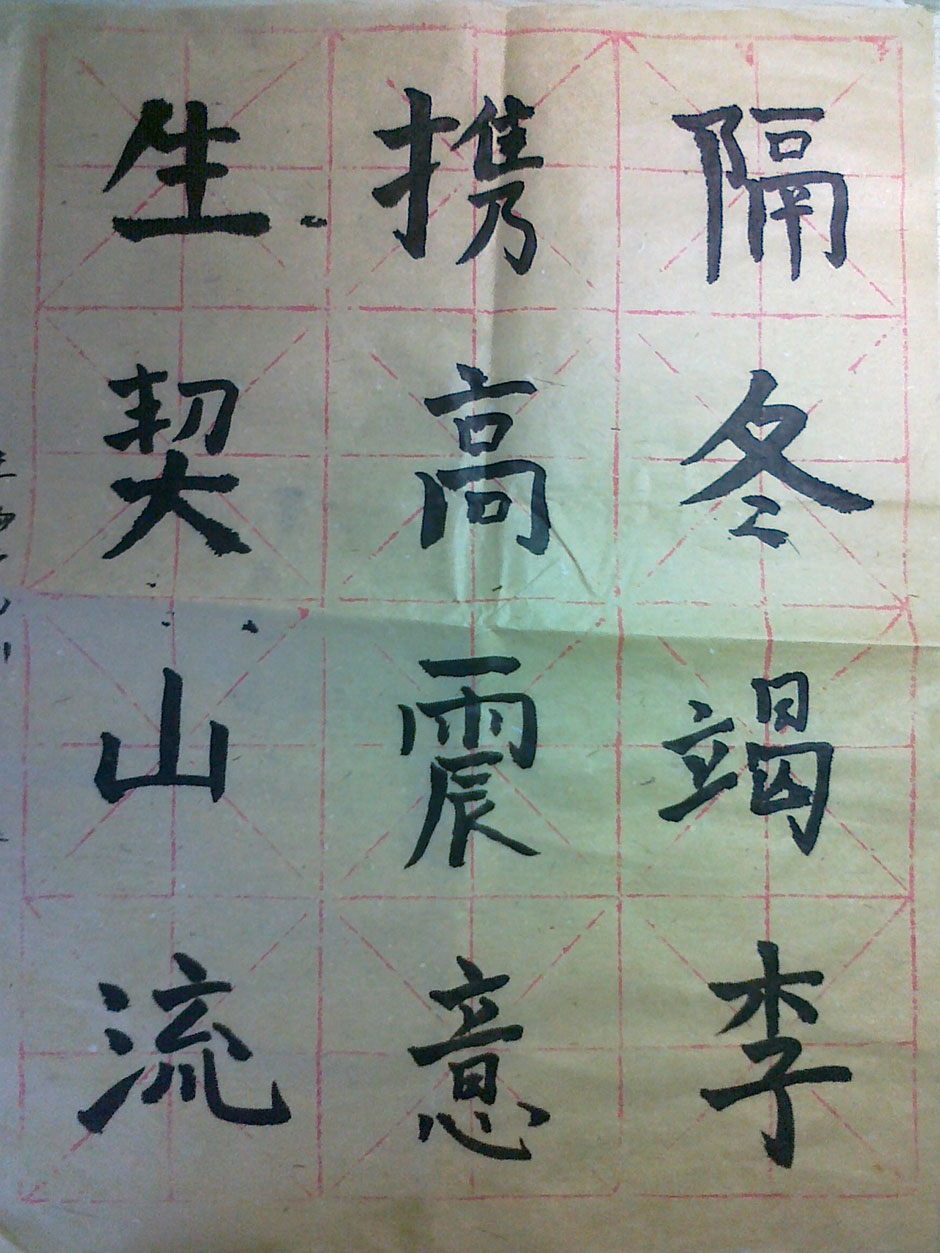 隔冬竭李
携高震意
生契山流